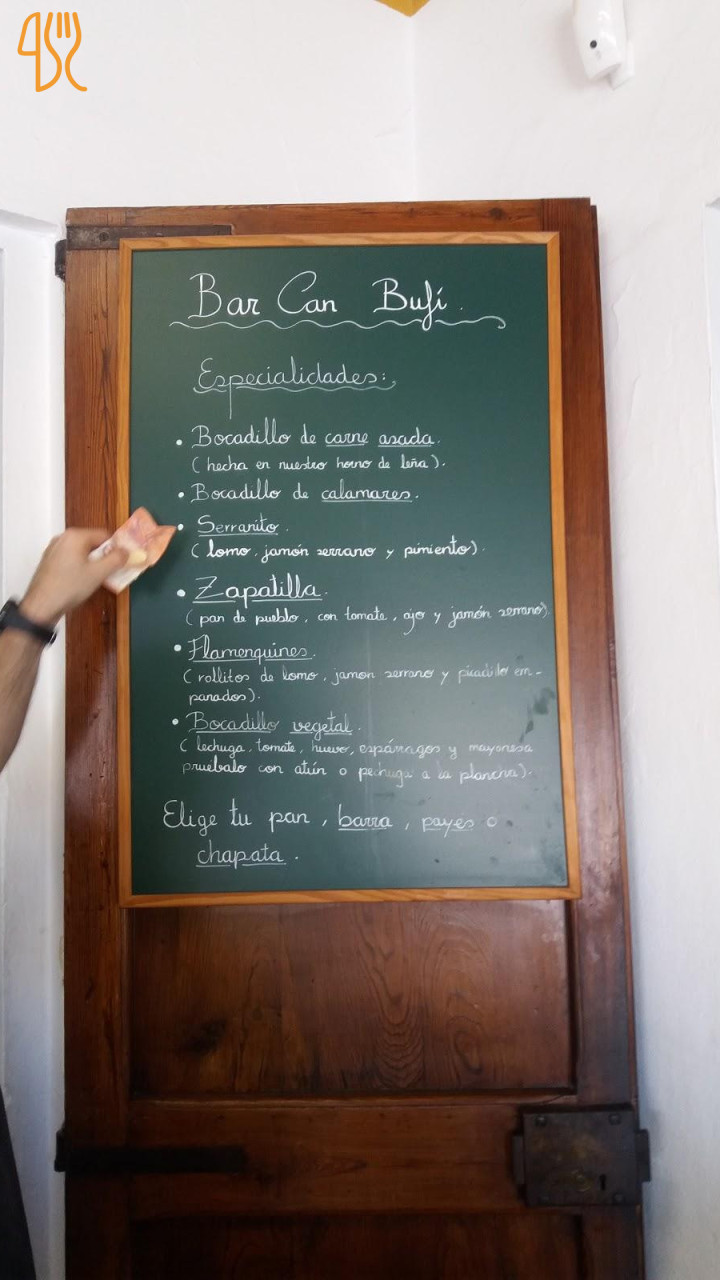 Bar Can Bufí.
Especialidades:
• Bocadillo de carne asada.
( hecha en nuestro horno de leña ).
• Bocadillo de calamares.
• Serranito.
( lomo, jamón serrano y pimiento).
• Zapatilla.
( pan de pueblo, con tomate, ajo y jamón serrano).
• Flamenquines.
( rollitos de lomo, jamon serrano y picadillo em-
panados).
• Bocadillo vegetal.
( lechuga, tomate, huevo, espárragos y mayonesa
pruebalo con atún o pechuga a la plancha).
Elige tu pan, barra, payes o
chapata.